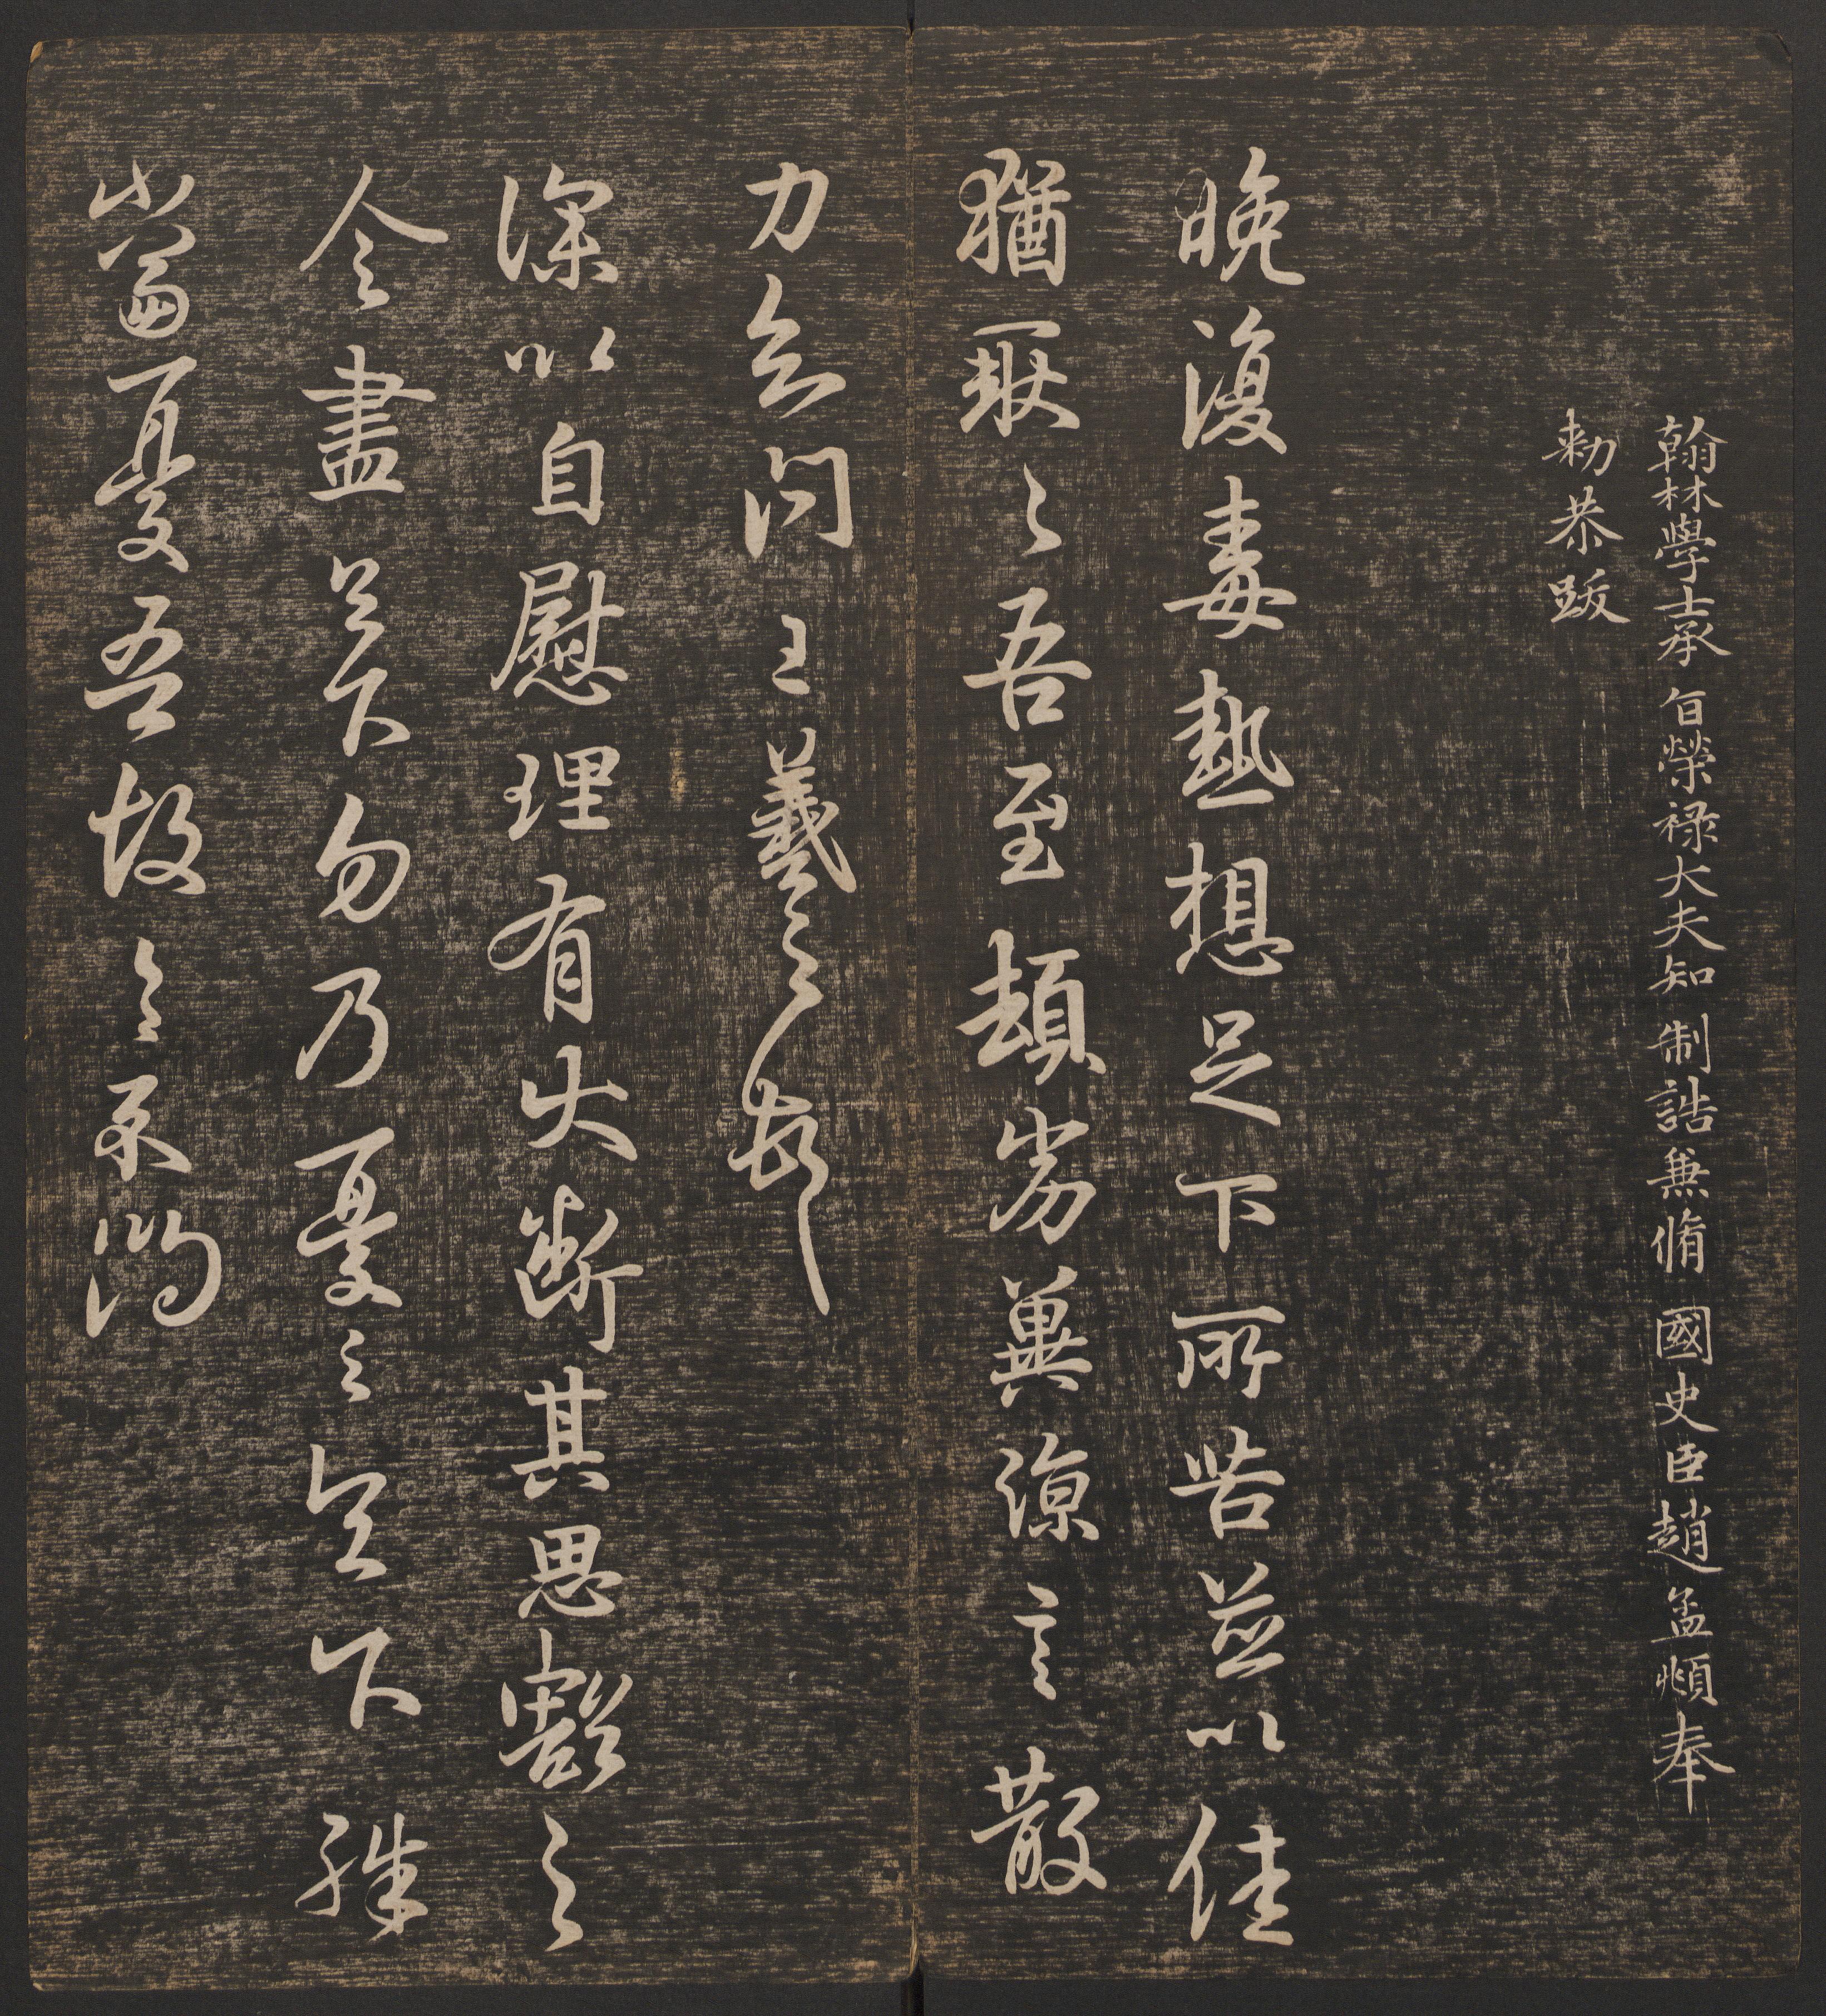 翰林學士承 旨榮祿大夫知 制誥兼脩 國史臣趙孟頫奉
勅恭跋
晚復毒熱想足下所苦並以佳
猶耿耿吾至頓劣冀涼言散
力知問王羲之頓首
深以自慰理有大斷其思豁之
令盡足下勿乃憂之足下殊
當憂吾故具示問